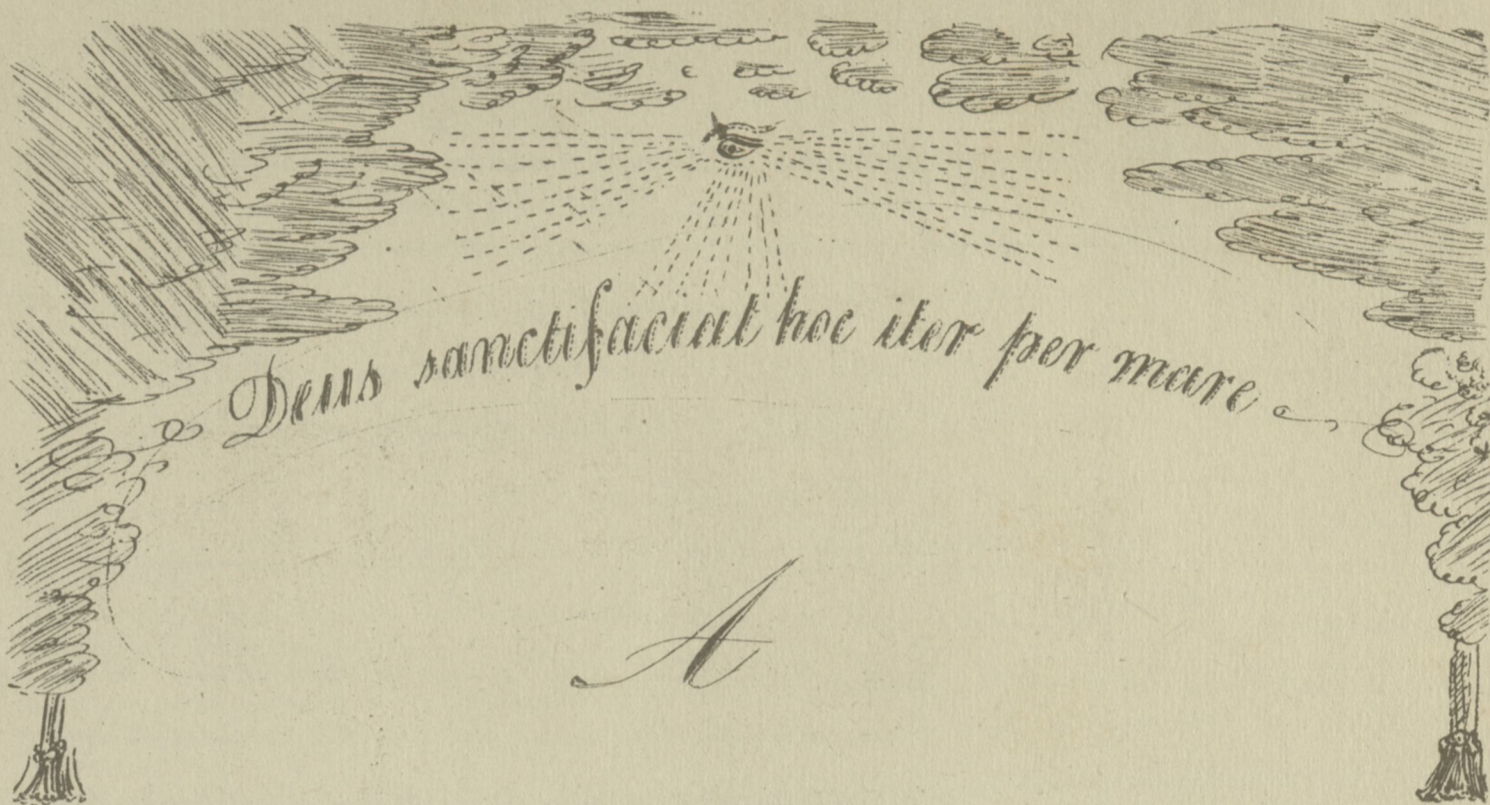 Deus sanctifaciat hoc iter per mare
A